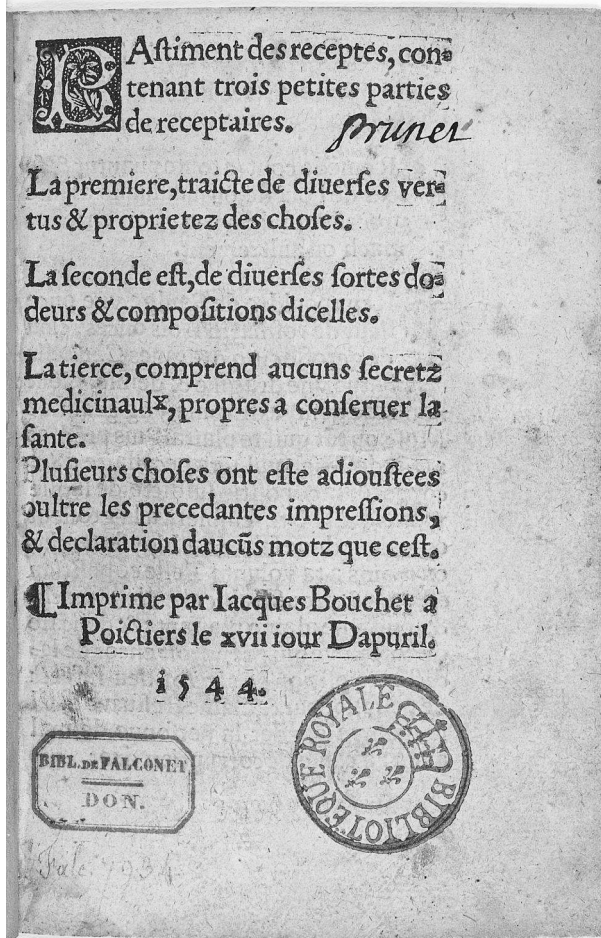 BAstiment des receptes, con-
tenant trois petites parties
de receptaires.
Pruner
La premiere, traicte de diuerſes ver-
tus & proprietez des choſes.
La ſeconde eſt, de diuerſes ſortes do-
deurs & compoſitions dicelles.
La tierce, comprend aucuns ſecretz
medicinaulx, propres a conſeruer la
ſante.
Pluſieurs choſes ont eſte adiouſtees
oultre les precedantes impreſſions,
& declaration daucūs motz que ceſt.
¶ Imprime par Iacques Bouchet a
Poictiers le xvii iour Dapuril.
1544.
BIBL. DE FALCONET
DON.
BIBLIOTEQUE ROYALE
Falc. 7934